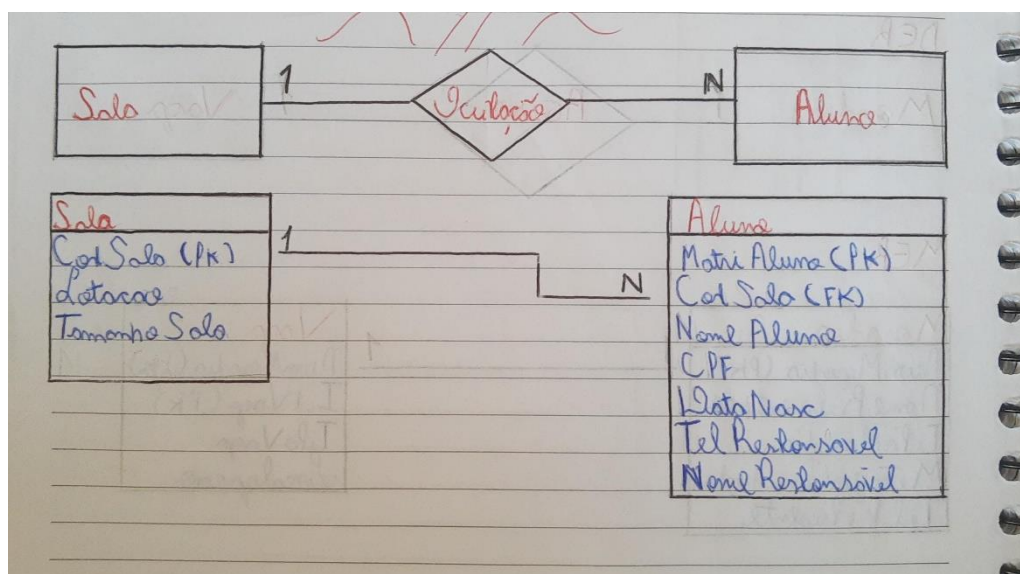 Sala
1
Ocupação
N
Aluno
Sala
Cod Sala (PK)
Lotacao
Tamanho Sala
1
N
Aluno
Matri Aluno (PK)
Cod Sala (FK)
Nome Aluno
CPF
Data Nasc
Tel Responsavel
Nome Responsável